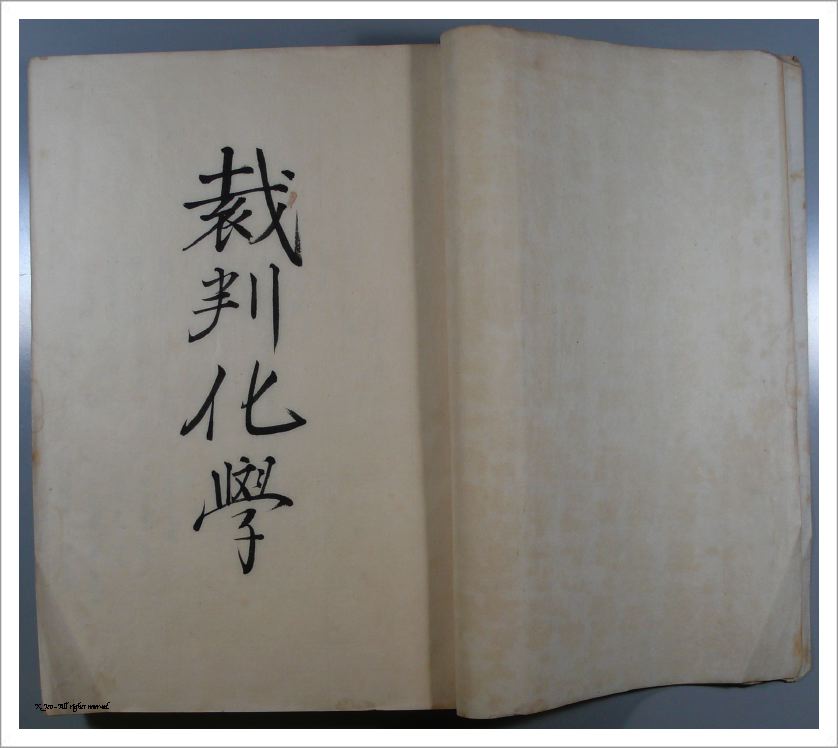 裁判化學
All rights reserved.